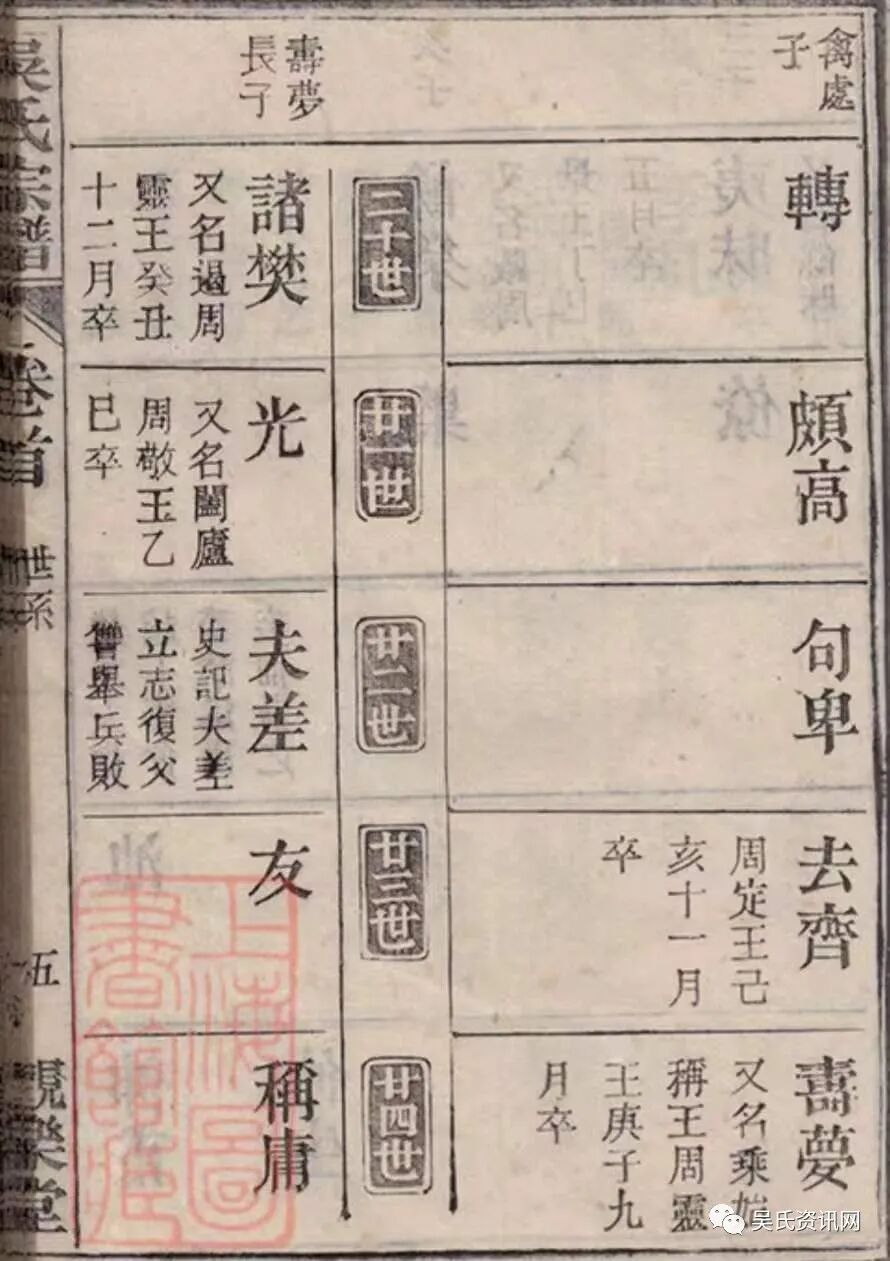 禽處
子
轉
頗高
句卑
去齊
周定王己
亥十一月
卒
壽夢
又名乘始
稱王周靈
王庚子九
月卒
二十世
廿一世
廿二世
廿三世
廿四世
壽夢
長子
諸樊
又名遏周
靈王癸丑
十二月卒
光
又名闔廬
周敬王乙
巳卒
夫差
史記夫差
立志復父
讐舉兵敗
友
稱庸
吳氏宗譜
卷首
世系
五
上海圖
書館藏
吴氏资讯网